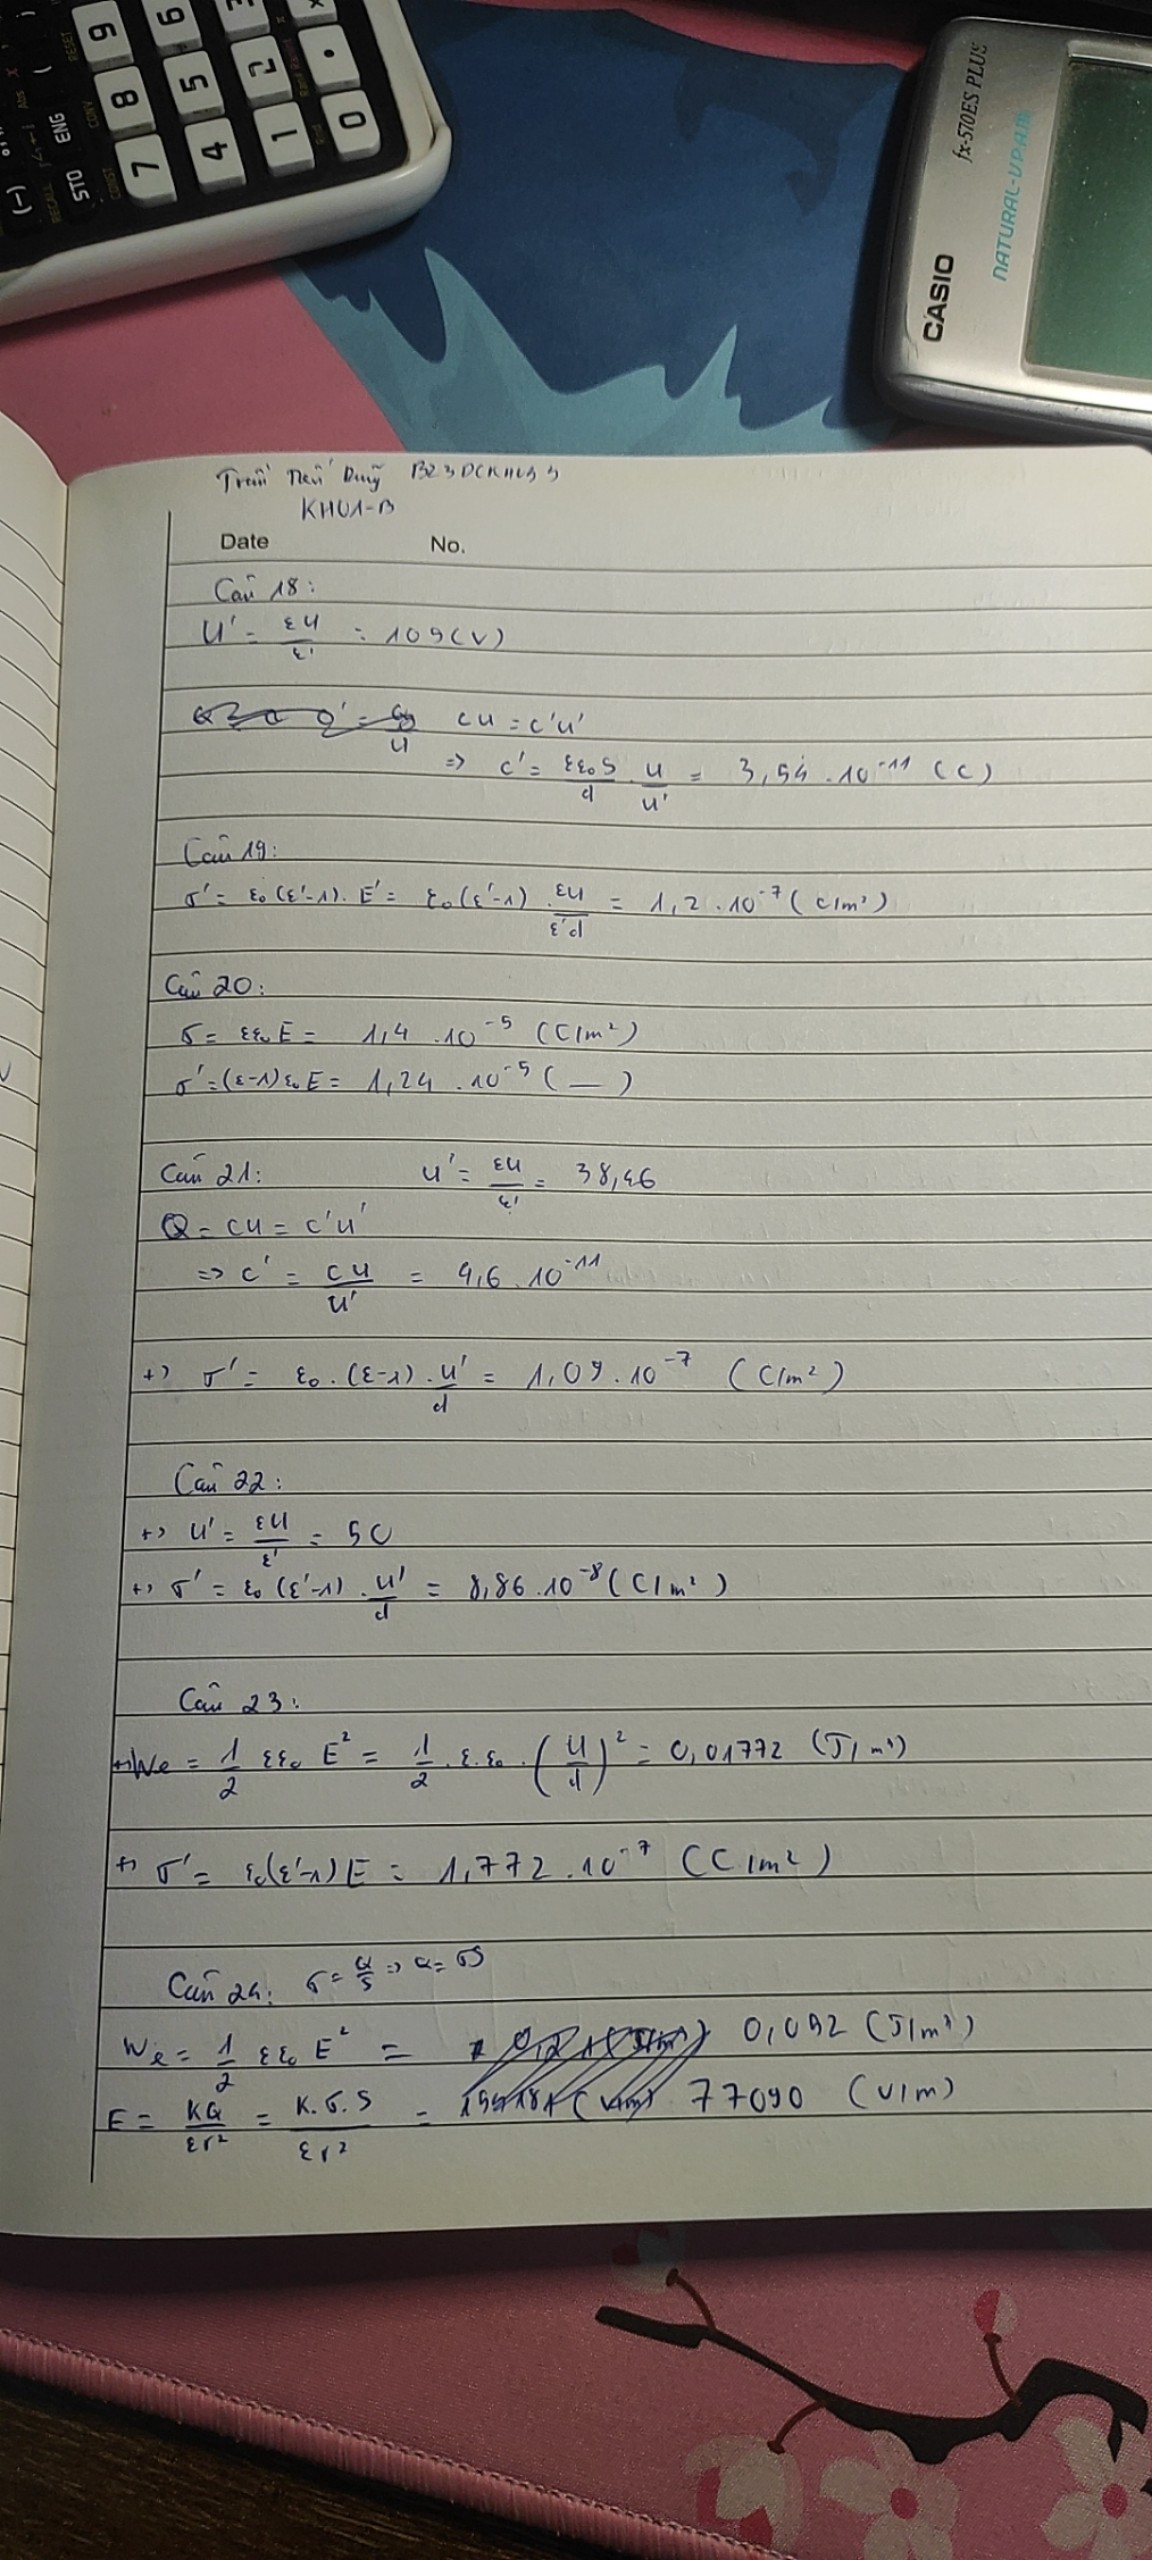 9 6 3 ×
8 5 2 •
7 4 1 0
(-) °'"
STO ENG (
CASIO fx-570ES PLUS
NATURAL-V.P.A.M.
KHU1-B
Date No.
Câu 18:
U' = εU/ε' = 109(V)
CU = C'U'
=> C' = εε₀S/d . U/U' = 3,54 . 10⁻¹¹ (C)
Câu 19:
σ' = ε₀(ε'-1). E' = ε₀(ε'-1) . εU/ε'd = 1,2 . 10⁻⁷ (C/m²)
Câu 20:
σ = εε₀E = 1,4 . 10⁻⁵ (C/m²)
σ' = (ε-1)ε₀E = 1,24 . 10⁻⁵ ( — )
Câu 21: U' = εU/ε' = 38,46
Q = CU = C'U'
=> C' = CU/U' = 4,6 . 10⁻¹¹
+) σ' = ε₀ . (ε-1) . U'/d = 1,09 . 10⁻⁷ (C/m²)
Câu 22:
+) U' = εU/ε' = 50
+) σ' = ε₀(ε'-1) . U'/d = 8,86 . 10⁻⁸ (C/m²)
Câu 23:
+) We = 1/2 εε₀ E² = 1/2 . ε.ε₀ . (U/d)² = 0,01772 (J/m³)
+) σ' = ε₀(ε'-1)E = 1,772 . 10⁻⁷ (C/m²)
Câu 24: σ = Q/S => Q = σS
We = 1/2 εε₀ E² = 0,092 (J/m³)
E = KQ/εr² = K.σ.S/εr² = 77090 (V/m)